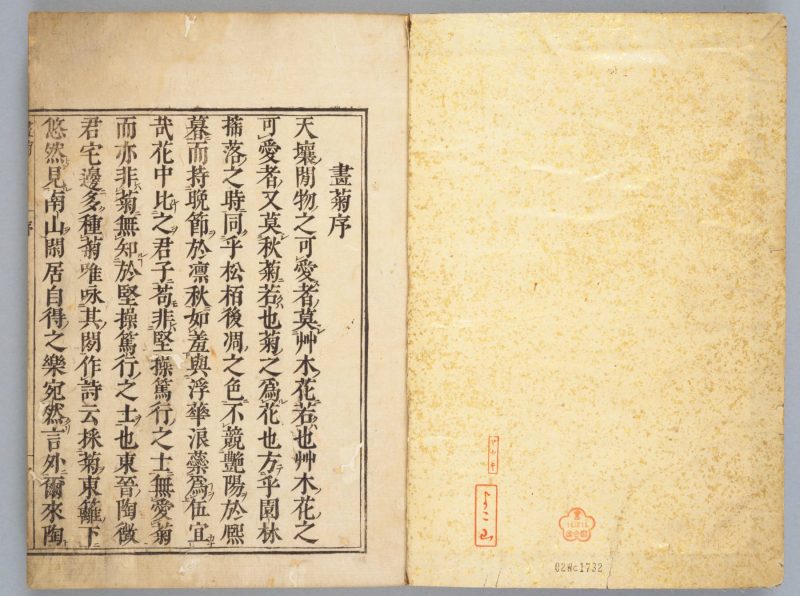 畫菊序
天壤間物之可愛者莫艸木花若也艸木花之
可愛者又莫秋菊若也菊之爲花也方乎園林
揺落之時同乎松栢後凋之色不競艷陽於熈
暮而持晚節於凛秋如羞與浮華浪蘂爲伍宜
㢤花中比之君子苟非堅操篤行之士無愛菊
而亦非菊無知於堅操篤行之士也東晉陶徴
君宅邊多種菊唯咏其閑作詩云採菊東籬下
悠然見南山閑居自得之樂宛然言外爾來陶
序
よこ山
02Wc1732